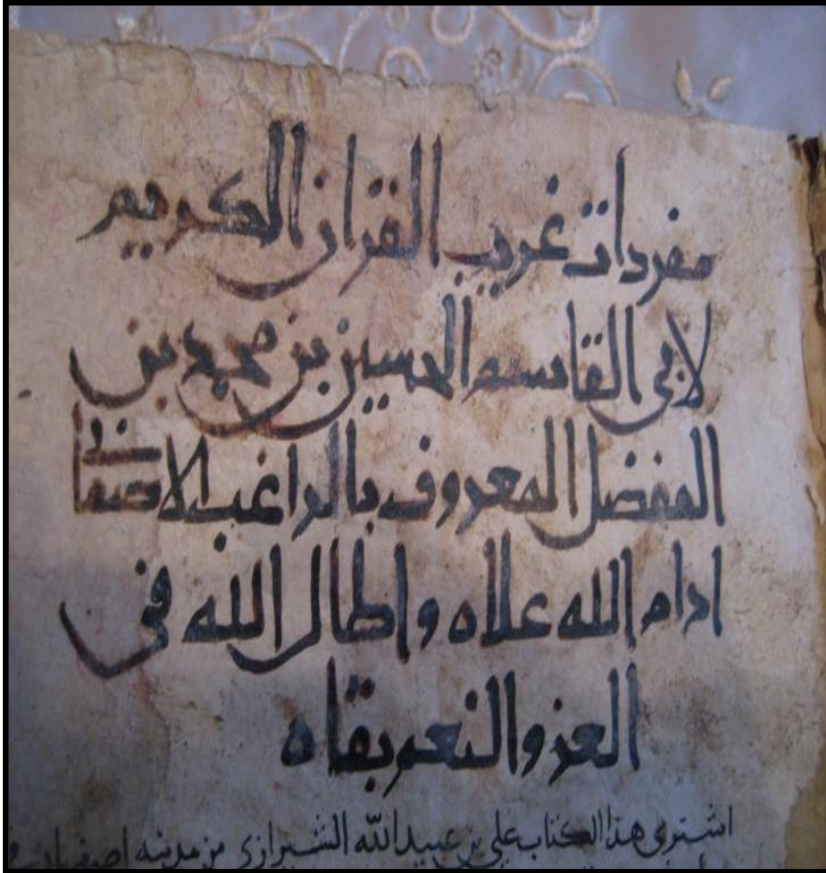 مفردات غريب القران الكريم
لابي القاسم الحسين بن محمد بن
المفضل المعروف بالراغب الاصفهاني
ادام الله علاه واطال الله في
العز والنعم بقاه
اشترى هذا الكتاب علي بن عبيد الله الشيرازي من مدينه اصفهان